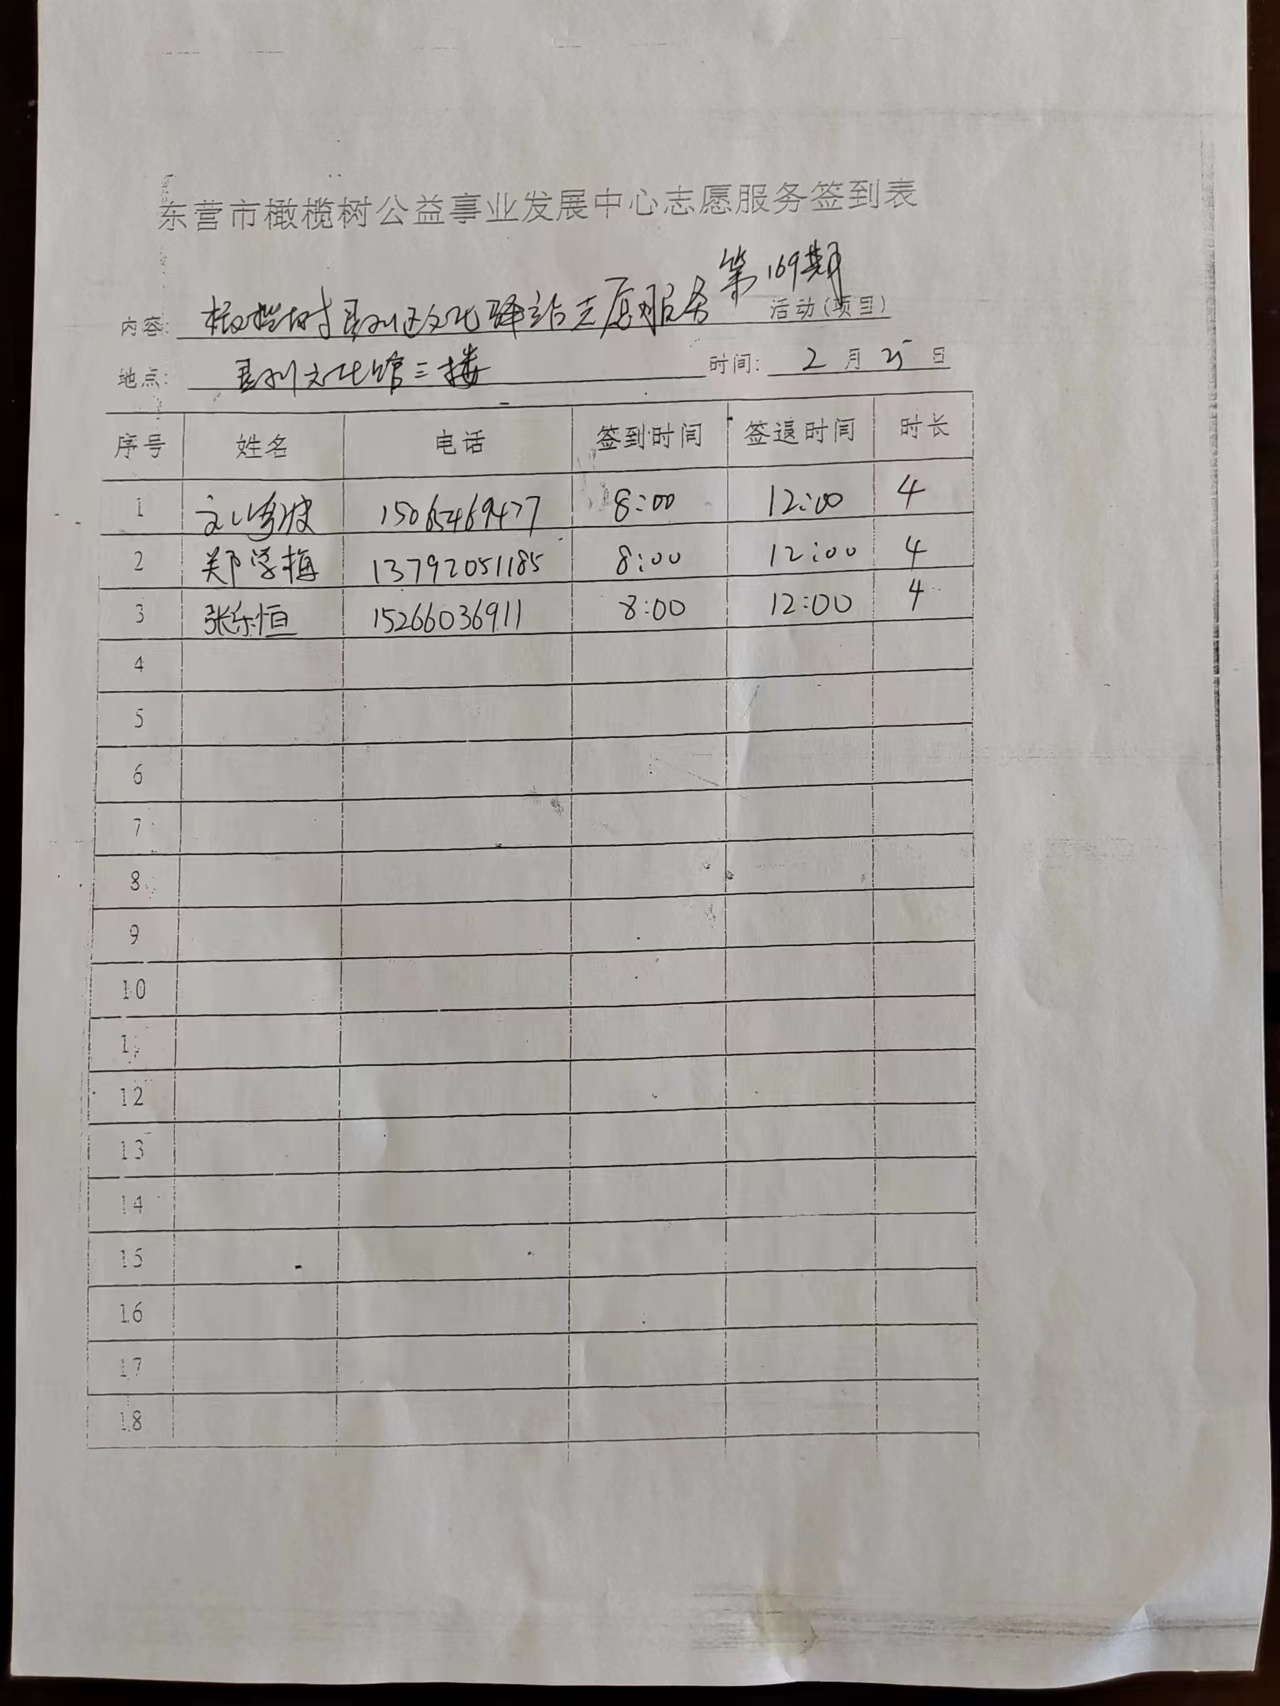 东营市橄榄树公益事业发展中心志愿服务签到表
内容: 橄榄树垦利区文化驿站志愿服务第169期 活动(项目)
地点: 垦利文化馆三楼 时间: 2 月 25 日
序号 姓名 电话 签到时间 签退时间 时长
1 15065469477 8:00 12:00 4
2 郑学梅 13792051185 8:00 12:00 4
3 张乐恒 15266036911 8:00 12:00 4
4
5
6
7
8
9
10
11
12
13
14
15
16
17
18